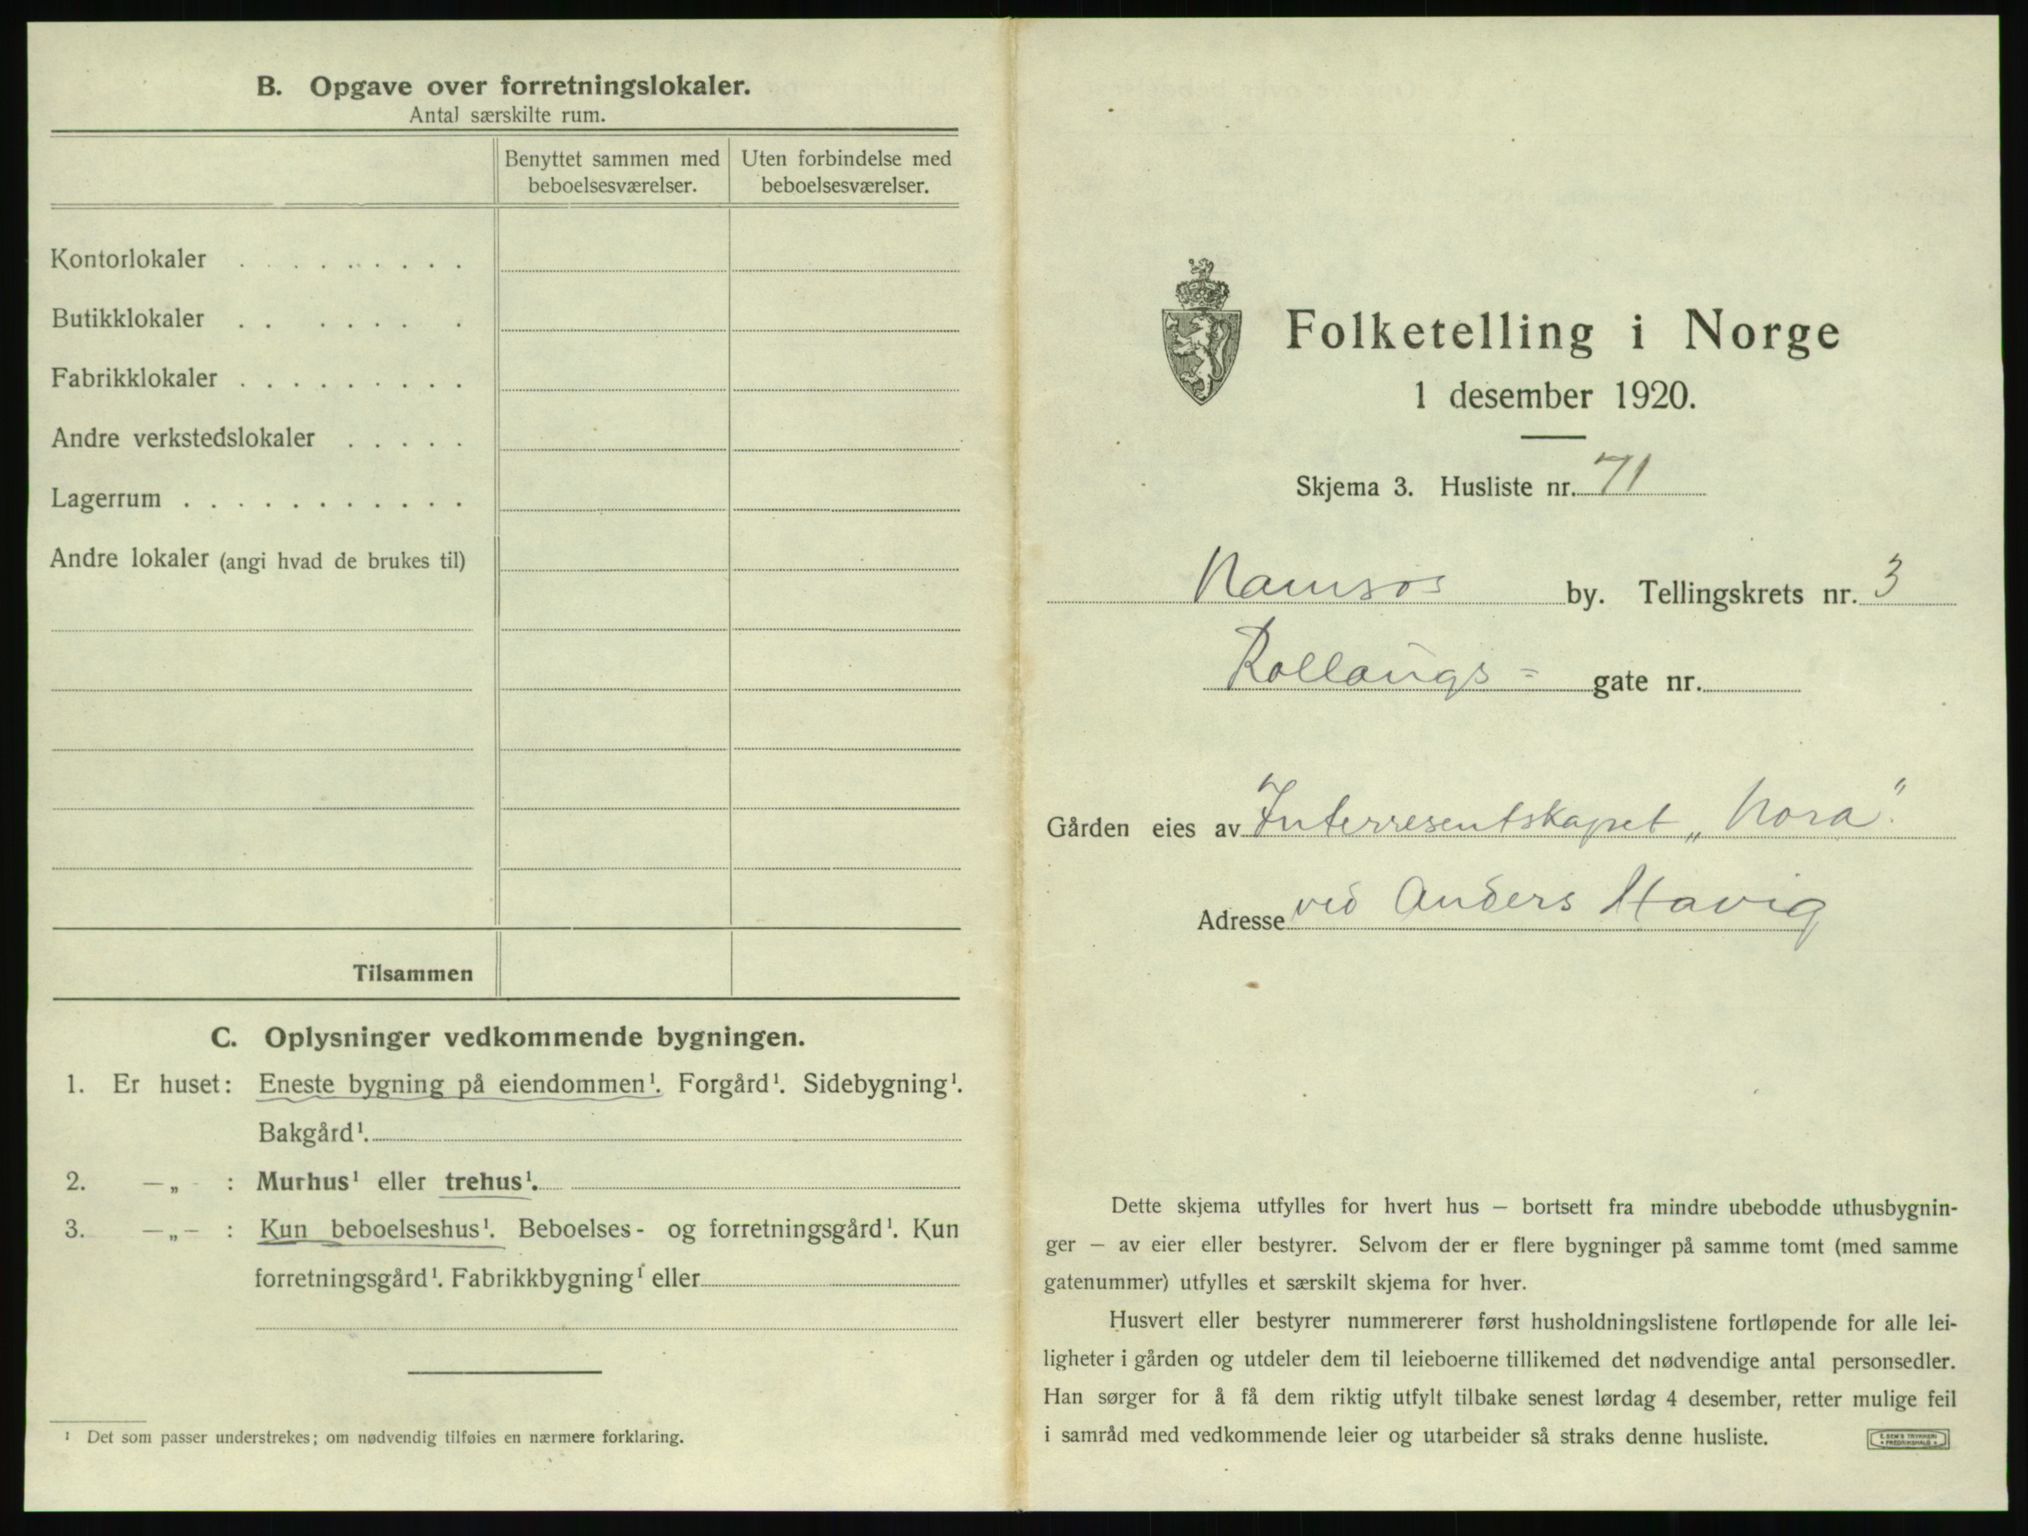 B. Opgave over forretningslokaler.
Antal særskilte rum.
Benyttet sammen med beboelsesværelser.
Uten forbindelse med beboelsesværelser.
Kontorlokaler . . . . . . . . .
Butikklokaler . . . . . . .
Fabrikklokaler . . . . . . . . .
Andre verkstedslokaler . . . . .
Lagerrum . . . . . . . . . . .
Andre lokaler (angi hvad de brukes til)
Tilsammen
C. Oplysninger vedkommende bygningen.
1. Er huset: Eneste bygning på eiendommen¹. Forgård¹. Sidebygning¹.
Bakgård¹.
2. —„— : Murhus¹ eller trehus¹.
3. —„— : Kun beboelseshus¹. Beboelses- og forretningsgård¹. Kun
forretningsgård¹. Fabrikkbygning¹ eller
¹ Det som passer understrekes; om nødvendig tilføies en nærmere forklaring.
Folketelling i Norge
1 desember 1920.
Skjema 3. Husliste nr. 71
Namsos by. Tellingskrets nr. 3
Rollaugs= gate nr.
Gården eies av Interresentskapet „Nora".
Adresse ved Anders Havig
Dette skjema utfylles for hvert hus — bortsett fra mindre ubebodde uthusbygnin-
ger — av eier eller bestyrer. Selvom der er flere bygninger på samme tomt (med samme
gatenummer) utfylles et særskilt skjema for hver.
Husvert eller bestyrer nummererer først husholdningslistene fortløpende for alle lei-
ligheter i gården og utdeler dem til leieboerne tillikemed det nødvendige antal personsedler.
Han sørger for å få dem riktig utfylt tilbake senest lørdag 4 desember, retter mulige feil
i samråd med vedkommende leier og utarbeider så straks denne husliste.
E. SEM'S TRYKKERI
FREDRIKSHALD